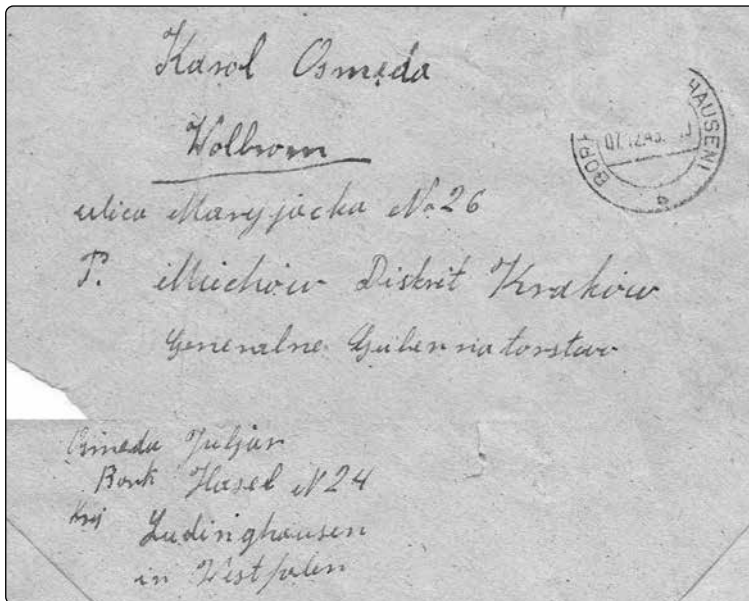 Karol Osmęda
Wolbrom
ulica Maryjacka No 26
P. Miechów Diskrit Kraków
Generalne Gubernatorstwo
BORK HAUSEN
07.12.43.
Osmęda Juljan
Bork Hasel N 24
Krej Ludinghausen
in Westfalen